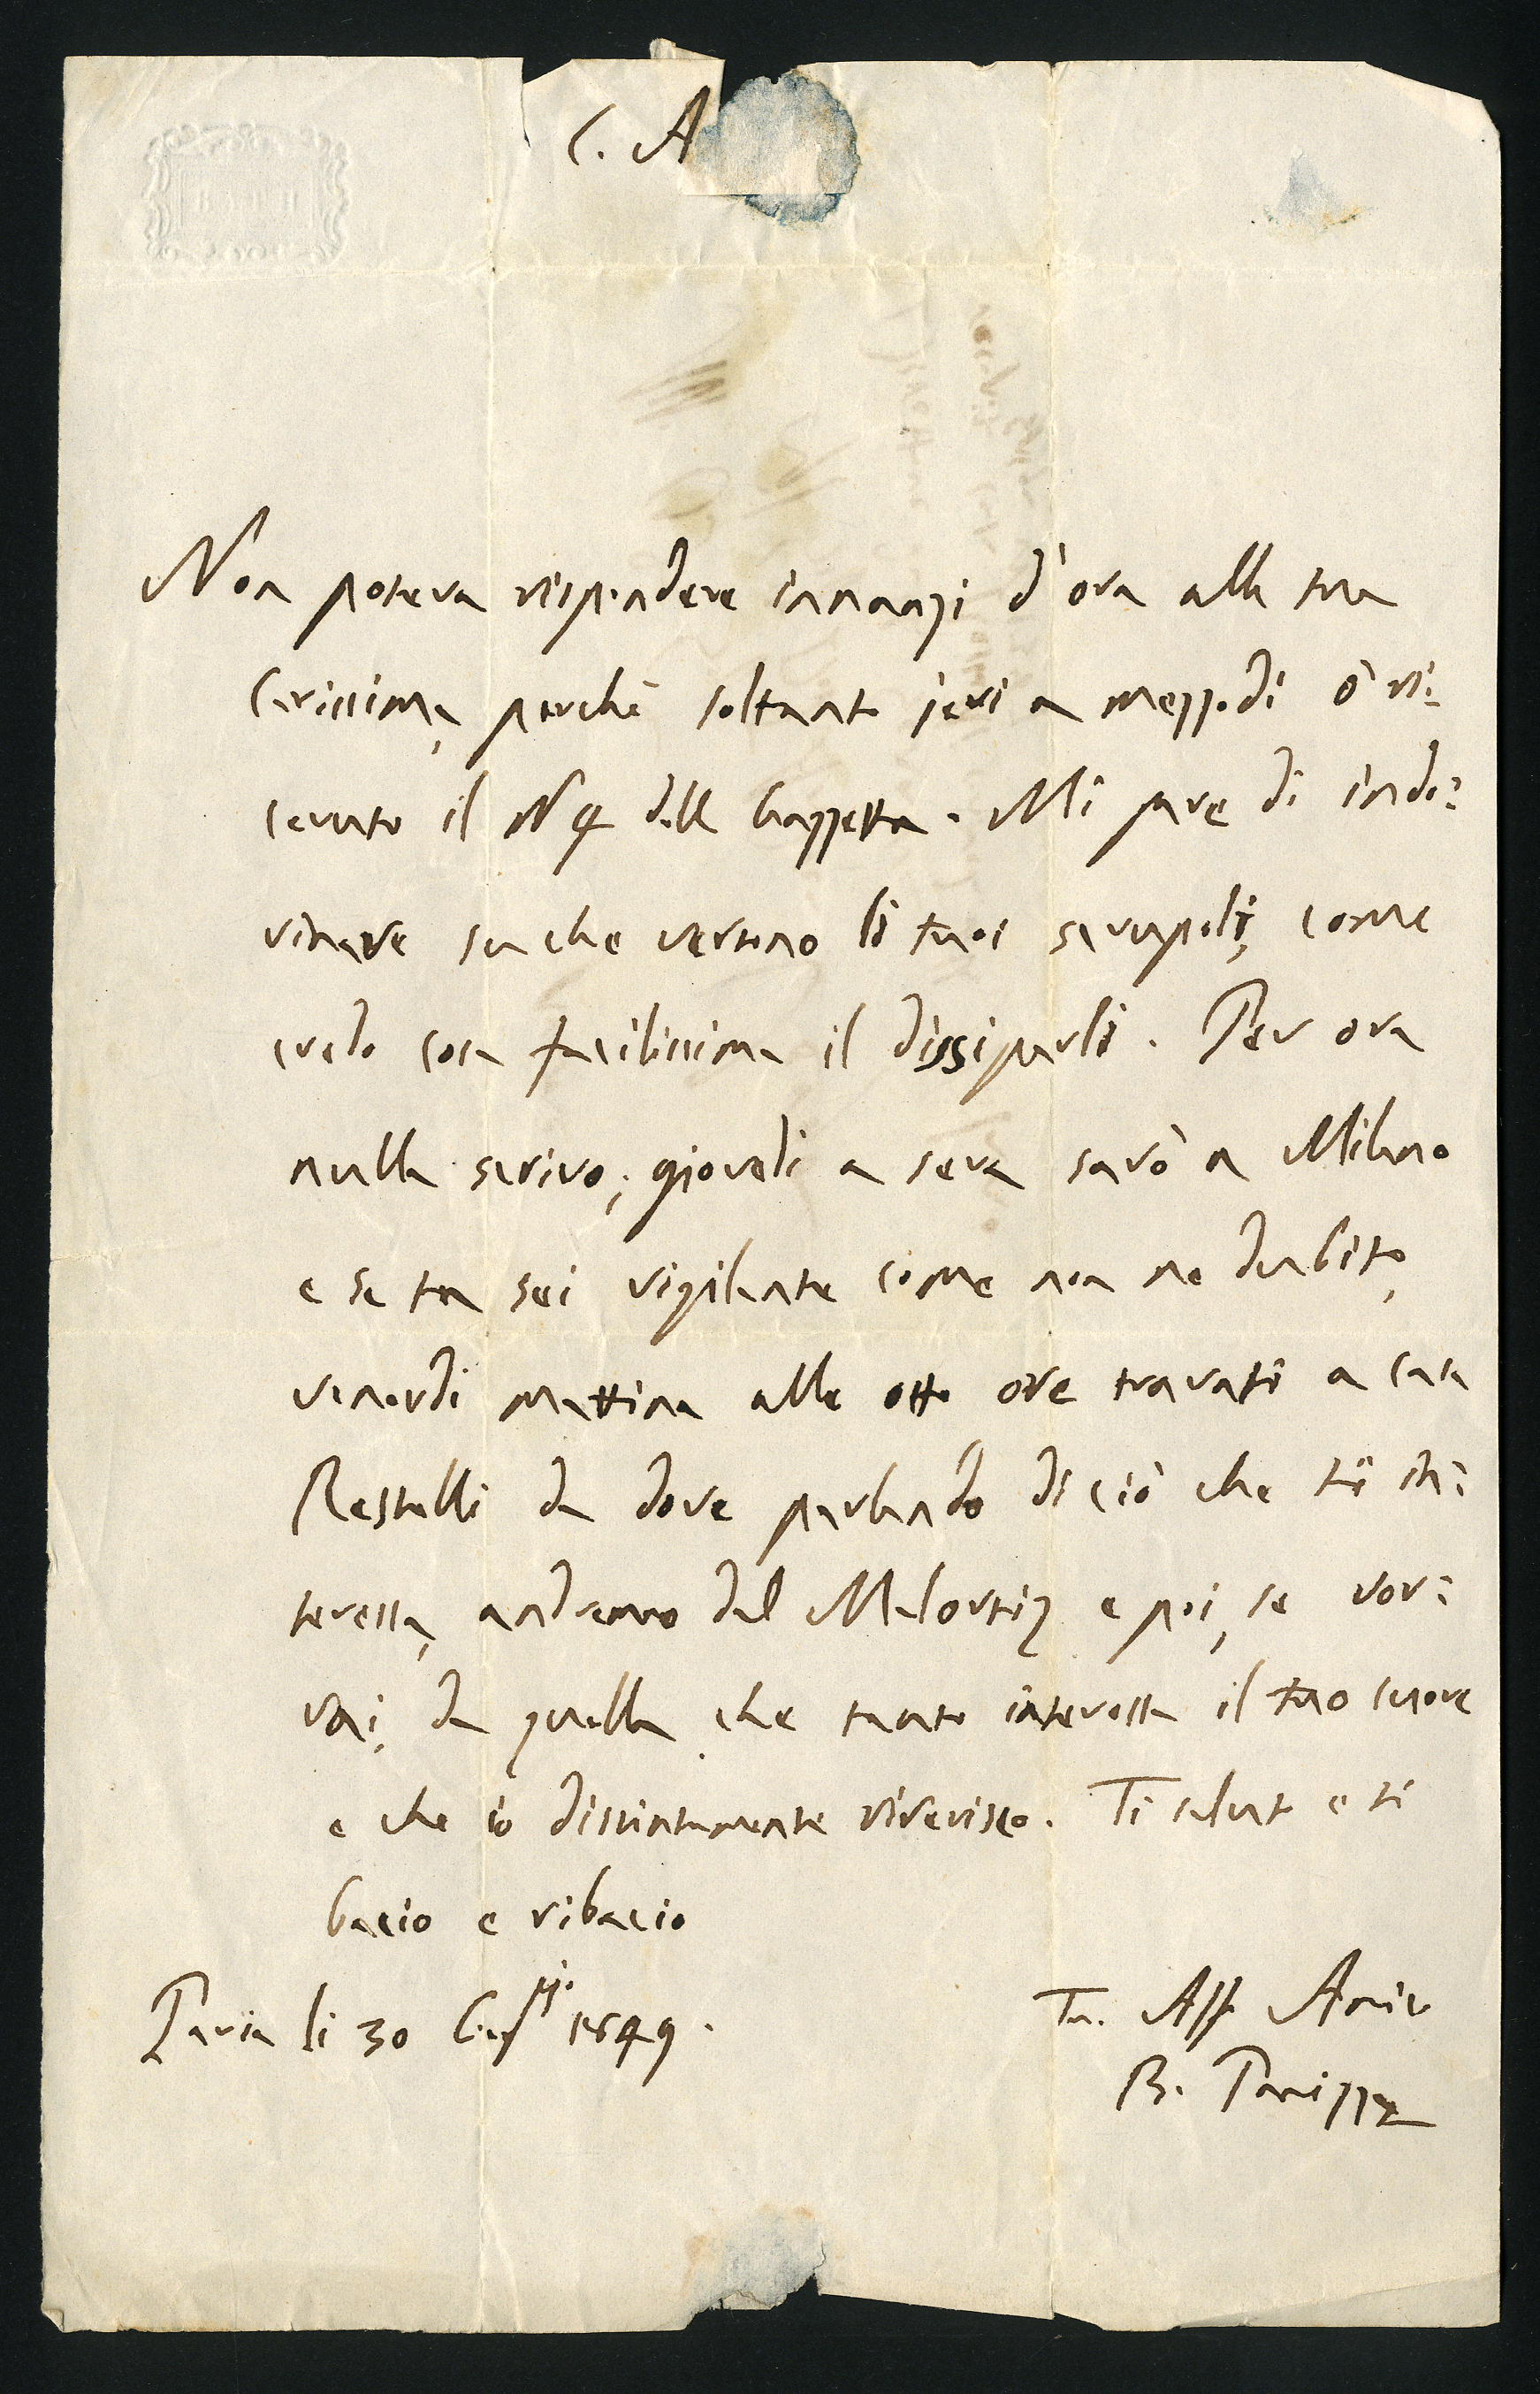 C. A
Non poteva rispondere innanzi d'ora alla tua
Carissima, perchè soltanto jeri a mezzodì ò ri-
cevuto il N 4 della Gazzetta. Mi pare di indo-
vinare su che vertono li tuoi scrupoli, come
credo cosa facilissima il dissiparli. Per ora
nulla scrivo; giovedì a sera sarò a Milano
e se tu sei vigilante come non ne dubito,
venerdì mattina alle otto ore trovati a casa
Restelli da dove parlando di ciò che ti in-
teressa, andremo dal Malortiz e poi, se vor-
rai, da quella che tanto interessa il tuo cuore
e che io distintamente riverisco. Ti saluto e ti
bacio e ribacio
Pavia li 30 1849.
Tu. Aff. Amico
B.